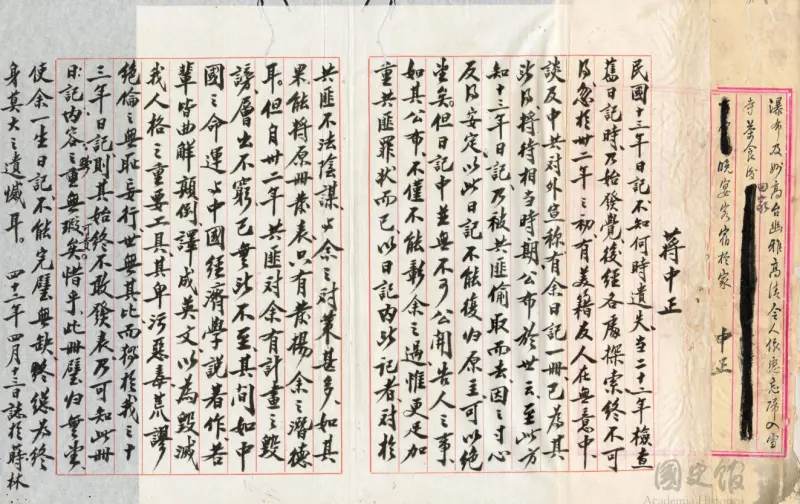 瀑布及妙高台幽雅高清令人依戀忘歸入雪
寺茶食後回家
晚宴客宿於家　中正
蔣中正
民國十三年日記不知何時遺失在二十一年檢查
舊日記時乃始發覺後經各處探索終不可
得忽於卅二年之初有美籍友人在無意中
談及中共對外宣稱有余日記一冊已為其
所得將待相當時期公布於世云至此方
知十三年日記乃被共匪偷取而去因之寸心
反得安定以此日記不能復歸原主可以絕
望矣但日記中並無不可公開告人之事
如其公布不僅不能彰余之過惟更足加
重共匪罪狀而已以日記內所記者對於
共匪不法陰謀與余之對策甚多如其
果能將原冊發表只有發揚余之潛德
耳但自卅二年共匪對余有計畫之毀
謗層出不窮已無所不至其間如中
國之命運與中國經濟學說著作若
輩皆曲解顛倒譯成英文以為毀滅
我人格之重要工具其卑污惡毒荒謬
絕倫之無恥妄行世無其比而獨於我之十
三年日記則其始終不敢發表乃可知此冊
日記內容之重無瑕矣惜乎此冊璧歸無望
使余一生日記不能完璧無缺殊為終
身莫大之遺憾耳
四十三年四月十三日誌於蒔林
國史館
Academia Historica